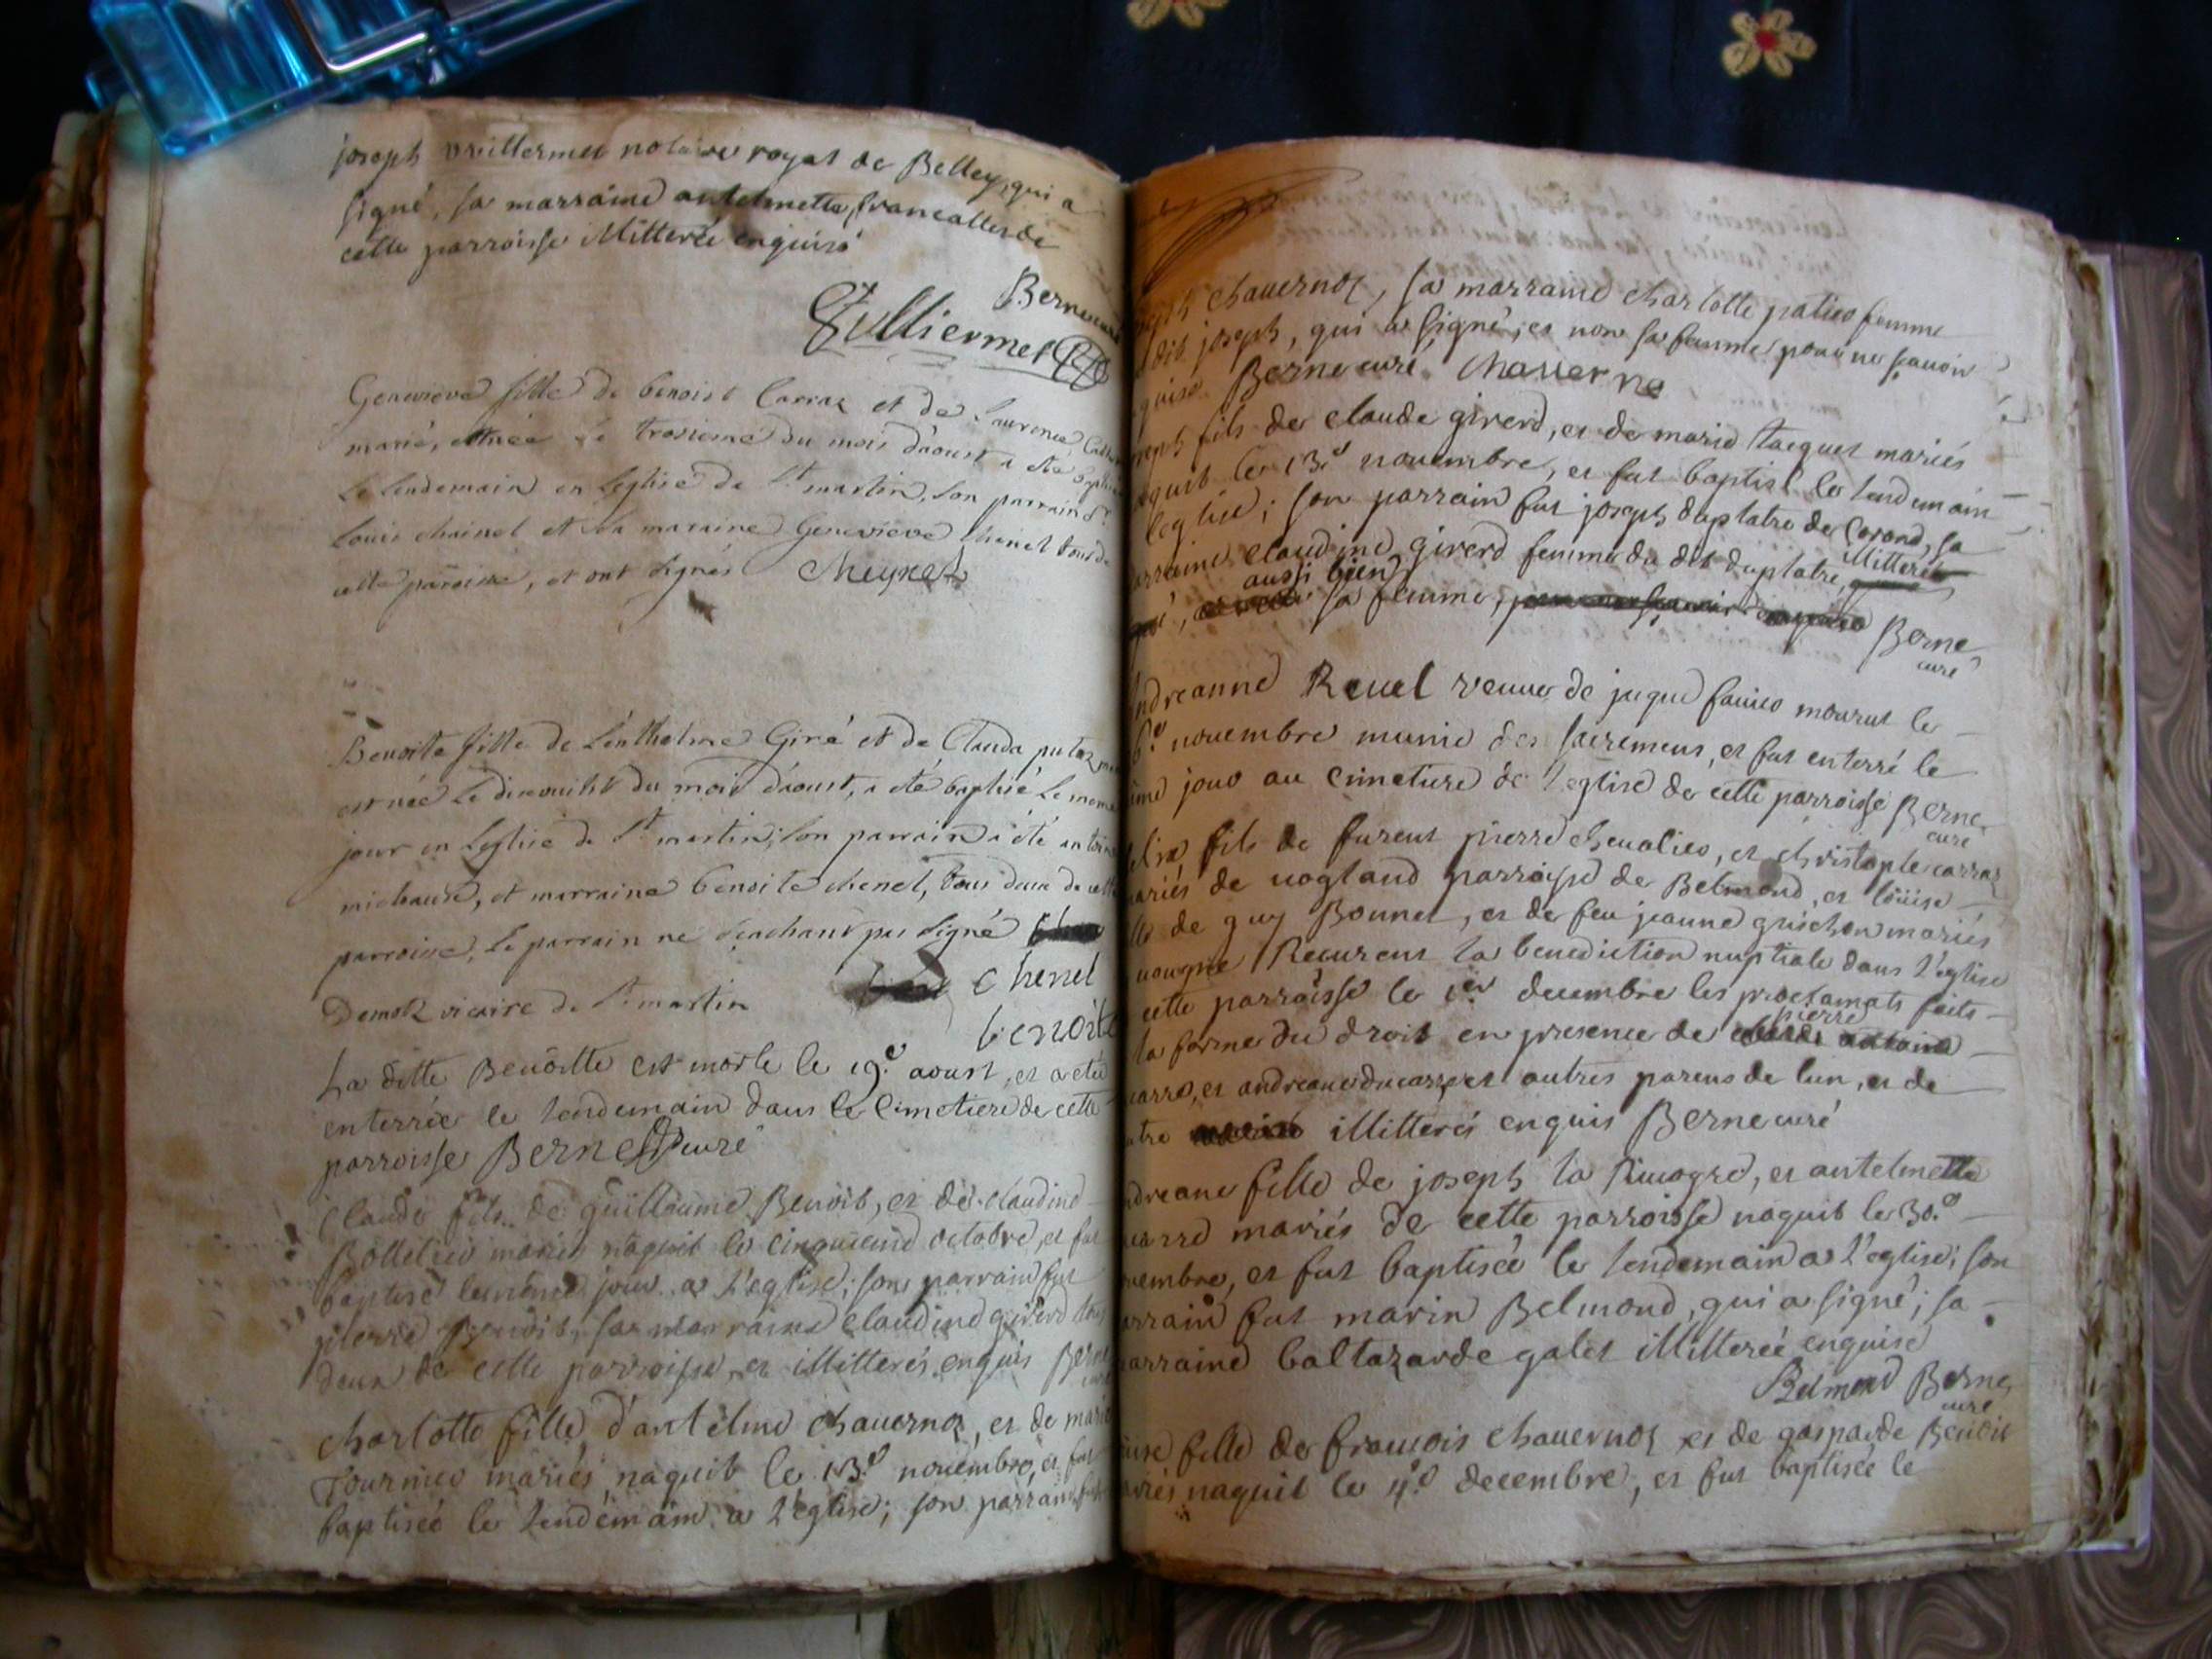 joseph vuillermet notaire royal de Belley, qui a
signé, sa marraine antelmette francallet de
cette parroisse illitterée enquise
Berne curé
Vulliermet
Genevieve fille de benoist Carraz et de Laurence
marié, est née le troisieme du mois d'aoust a été baptisée
le lendemain en l'eglise de St martin, son parrain Sr
Louis chainel et sa maraine Genevieve chenel tous de
cette paroisse, et ont signés Cheynel
Benoite fille de Lenthelme Giré et de Clauda putaz
est née le dixhuit du mois d'aoust, a été baptisé le meme
jour en l'eglise de St martin; son parrain a été antoine
michaud, et marraine benoite chenel, tous deux de cette
parroisse, le parrain ne sachant pas signé
chenel
Demoz vicaire de St martin
benoite
La ditte Benoitte est morte le 19.e aoust, et a eté
enterrée le lendemain dans le cimetiere de cette
parroisse Berne curé
Claude fils de guillaume Benoit, et de claudine
Bottelier mariés naquit le cinquieme octobre, et fut
baptisé le même jour a l'eglise; son parrain fut
pierre Benoit, sa marraine claudine girerd tous
deux de cette parroisse, et illitterés enquis Berne
curé
charlotte fille d'antelme chavernoz, et de marie
Fournier mariés naquit le 13.e novembre, et fut
baptisée le lendemain a l'eglise; son parrain fut
joseph chavernoz, sa marraine charlotte patier femme
dudit joseph, qui a signé, et non sa femme pour ne savoir
enquise. Berne curé chauerno
joseph fils de claude girerd, et de marie Jacquet mariés
naquit le 13.e novembre, et fut baptisé le lendemain
l'eglise; son parrain fut joseph duplatre de Lorond, sa
marraine claudine girerd femme du dit duplatre, illitteré
aussi bien
sa femme, Berne
curé
Andreanne Revel veuve de juque favier mourut le
6.e novembre munie des sacremens, et fut enterré le
même jour au cimetiere de l'eglise de cette parroisse Berne
curé
felix fils de furent pierre chevalier, et christople carraz
mariés de vogland parroisse de Belmond, et loüise
fille de guy Bonnet, et de feu jeanne grischon mariés
vougne Recurent la benediction nuptiale dans l'eglise
cette parroisse le 1.er decembre les proclamats faits
pierre
la forme du droit en presence de
carro, et andreane ducarre, et autres parens de lun, et de
autre illitterés enquis Berne curé
Andreane fille de joseph la Rivogre, et antelmette
carre mariés de cette parroisse naquit le 30.e
novembre, et fut baptisée le lendemain a l'eglise; son
parrain fut marin Belmond, qui a signé; sa
marraine baltazarde galet illitterée enquise
Belmond Berne
curé
fille de francois chavernoz et de gasparde Benoit
mariés naquit le 4.e decembre, et fut baptisée le